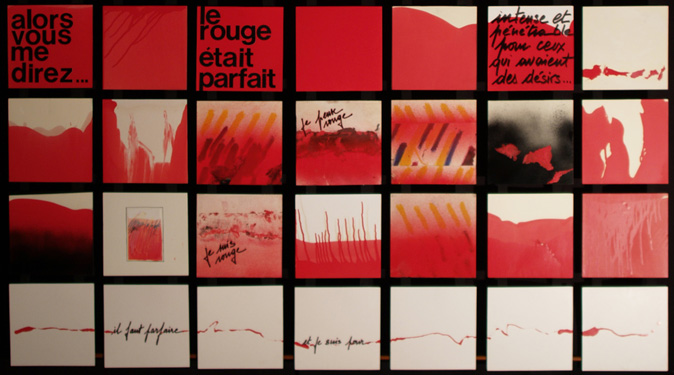 alors
vous
me
direz...
le
rouge
était
parfait
intense et
pénétrable
pour ceux
qui avaient
des désirs...
je peux
rouge
je suis
rouge
il faut parfaire
et je suis pour